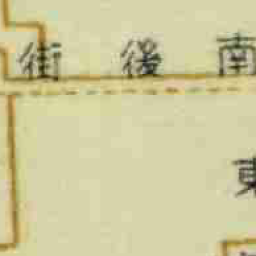 南後街
東